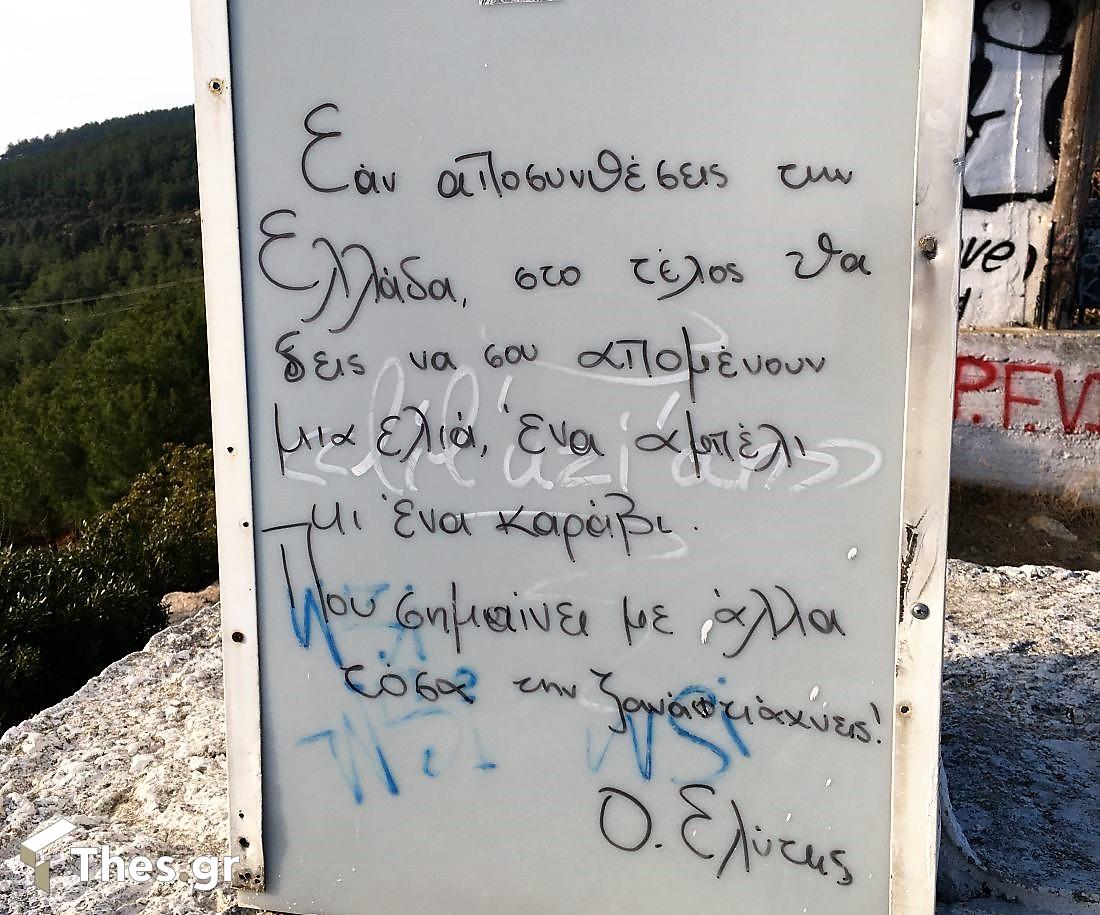 Εάν αποσυνθέσεις την
Ελλάδα, στο τέλος θα
δεις να σου απομένουν
μια ελιά, ένα αμπέλι
κι ένα καράβι.
Που σημαίνει με άλλα
τόσα την ξαναφτιάχνεις!
Ο. Ελύτης
P.F.V.
Thes.gr